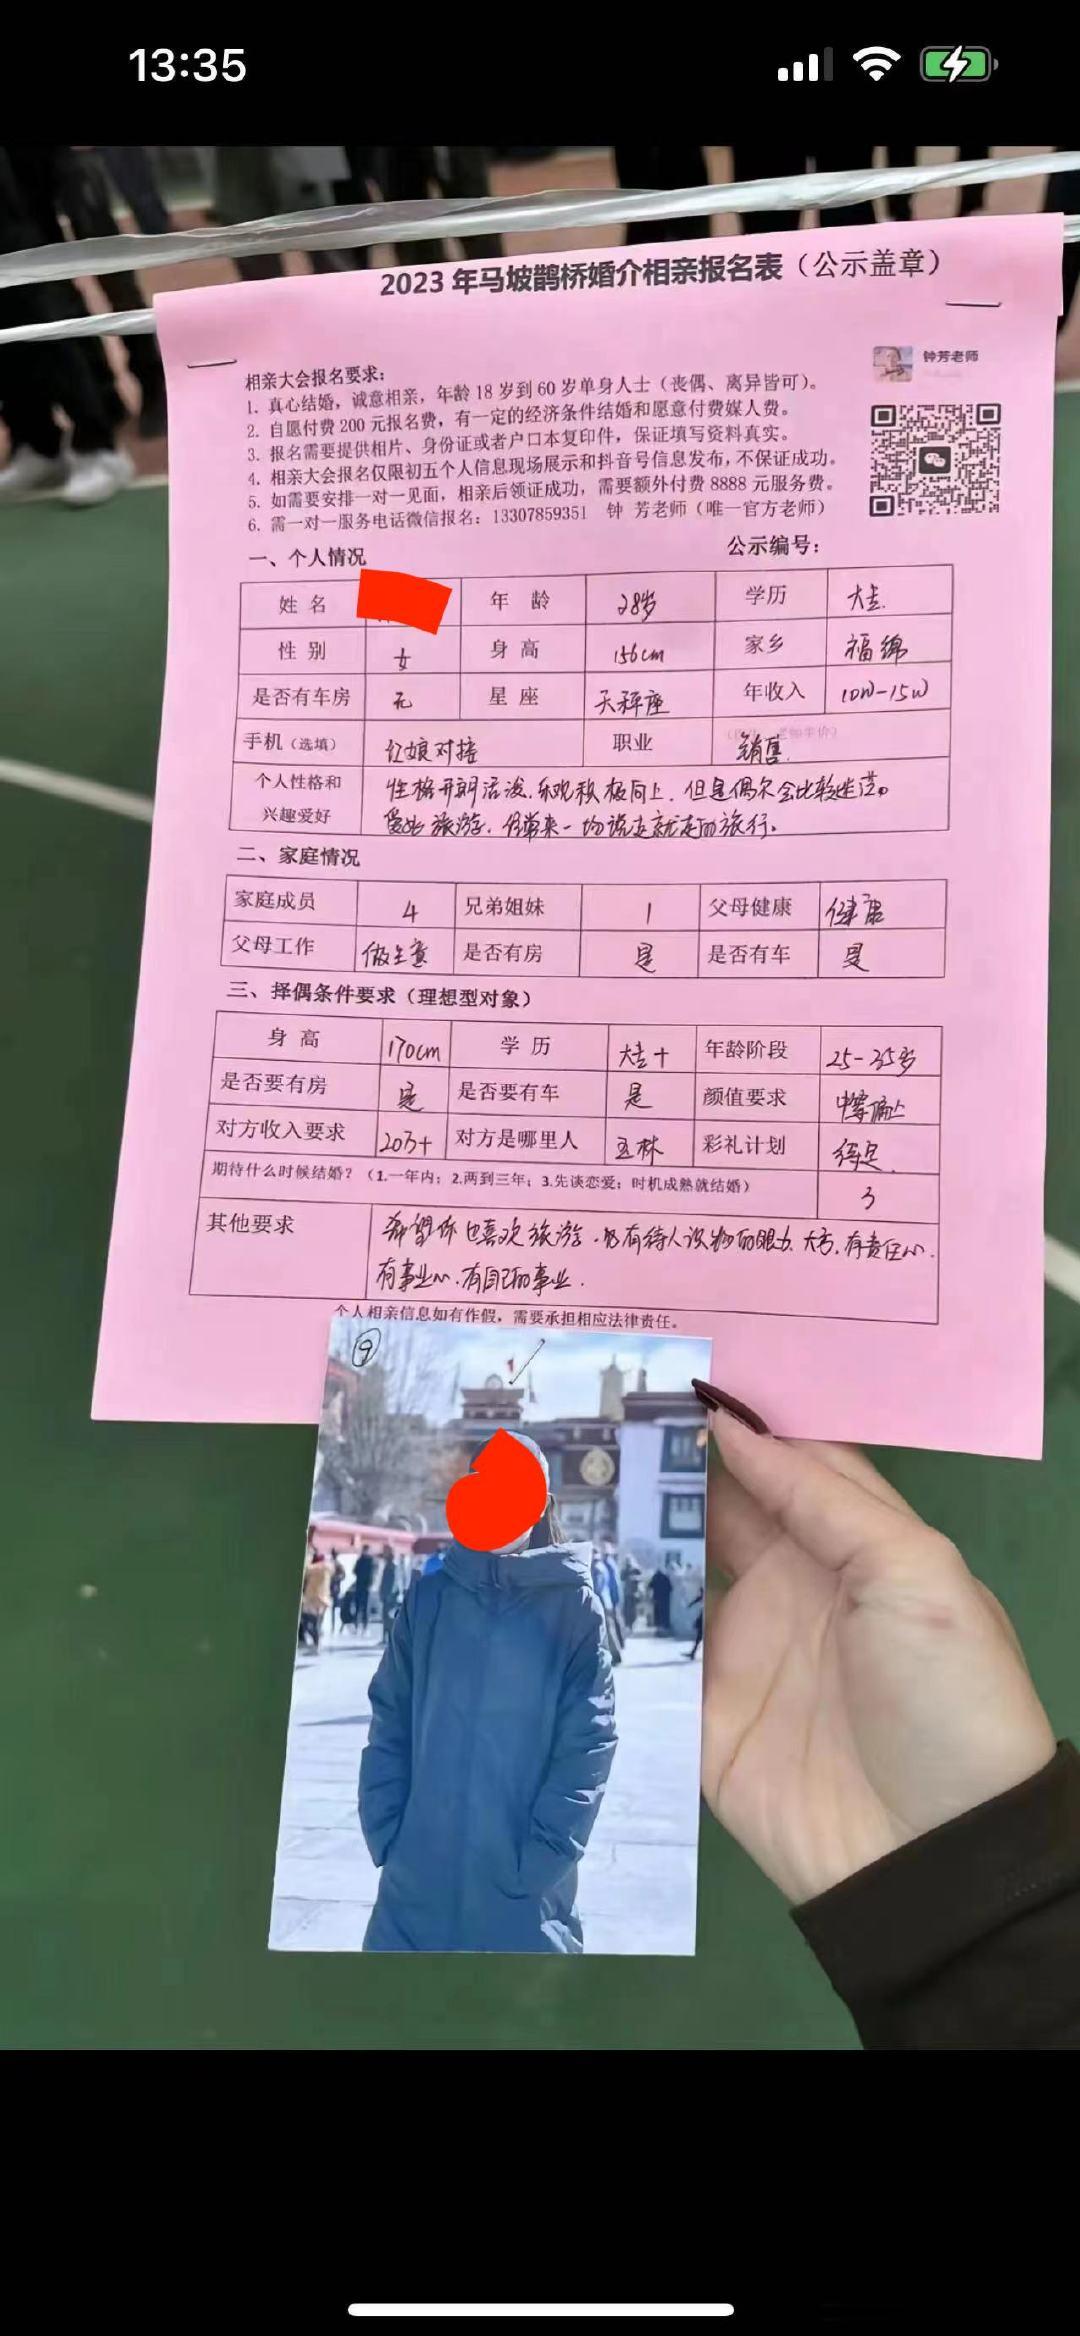 13:35
2023年马坡鹊桥婚介相亲报名表（公示盖章）
钟芳老师
相亲大会报名要求：
1. 真心结婚，诚意相亲，年龄18岁到60岁单身人士（丧偶、离异皆可）。
2. 自愿付费200元报名费，有一定的经济条件结婚和愿意付费媒人费。
3. 报名需要提供相片、身份证或者户口本复印件，保证填写资料真实。
4. 相亲大会报名仅限初五个人信息现场展示和抖音号信息发布，不保证成功。
5. 如需要安排一对一见面，相亲后领证成功，需要额外付费8888元服务费。
6. 需一对一服务电话微信报名：13307859351 钟 芳老师（唯一官方老师）
一、个人情况 公示编号：
姓 名 年 龄 28岁 学历 大专
性 别 女 身 高 156cm 家乡 福绵
是否有车房 无 星 座 天秤座 年收入 10W-15W
手机（选填） 红娘对接 职业 销售
个人性格和
兴趣爱好
性格开朗活泼、乐观积极向上，但是偶尔会比较迷茫。
爱好旅游，经常来一场说走就走的旅行。
二、家庭情况
家庭成员 4 兄弟姐妹 1 父母健康 健康
父母工作 做生意 是否有房 是 是否有车 是
三、择偶条件要求（理想型对象）
身 高 170cm 学 历 大专+ 年龄阶段 25-35岁
是否要有房 是 是否要有车 是 颜值要求 中等偏上
对方收入要求 20万+ 对方是哪里人 玉林 彩礼计划 待定
期待什么时候结婚？（1.一年内；2.两到三年；3.先谈恋爱；时机成熟就结婚） 3
其他要求
希望你也喜欢旅游，有待人识物的眼力、大方、有责任心、
有事业心、有自己的事业.
个人相亲信息如有作假，需要承担相应法律责任。
9